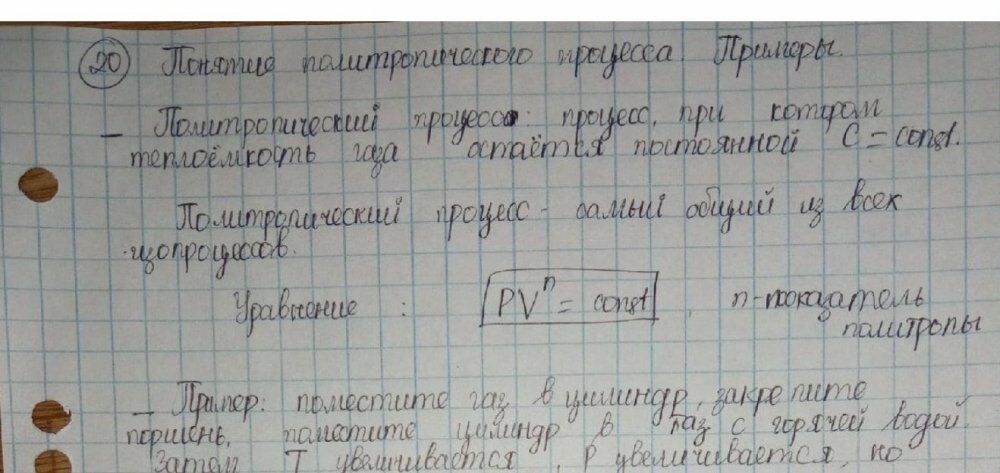 20 Понятие политропического процесса. Примеры.
– Политропический процесс: процесс, при котором
теплоёмкость газа остаётся постоянной C = const.
Политропический процесс - самый общий из всех
изопроцессов.
Уравнение : PVⁿ = const, n-показатель
политропы
– Пример: поместите газ в цилиндр, закрепите
поршень, поместите цилиндр в таз с горячей водой.
Затем T увеличивается, P увеличивается, но